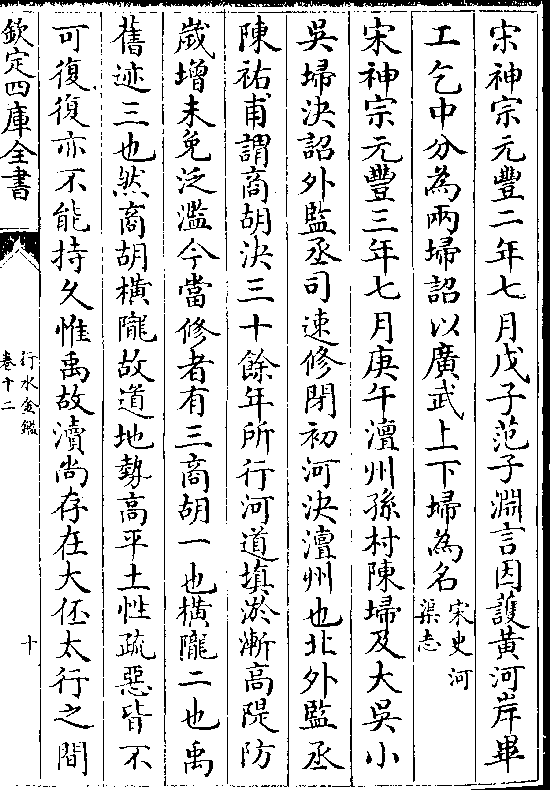 宋神宗元豐二年七月戊子范子淵言因護黃河岸畢
工乞中分為兩埽詔以廣武上下埽為名宋史河渠志
宋神宗元豐三年七月庚午澶州孫村陳埽及大吳小
吳埽決詔外監丞司速修閉初河決澶州也北外監丞
陳祐甫謂商胡決三十餘年所行河道填淤漸高隄防
歲增未免泛濫今當修者有三商胡一也橫隴二也禹
舊迹三也然商胡橫隴故道地勢高平土性疏惡皆不
可復復亦不能持久惟禹故瀆尚存在大伾太行之間
欽定四庫全書
行水金鑑
卷十二
十